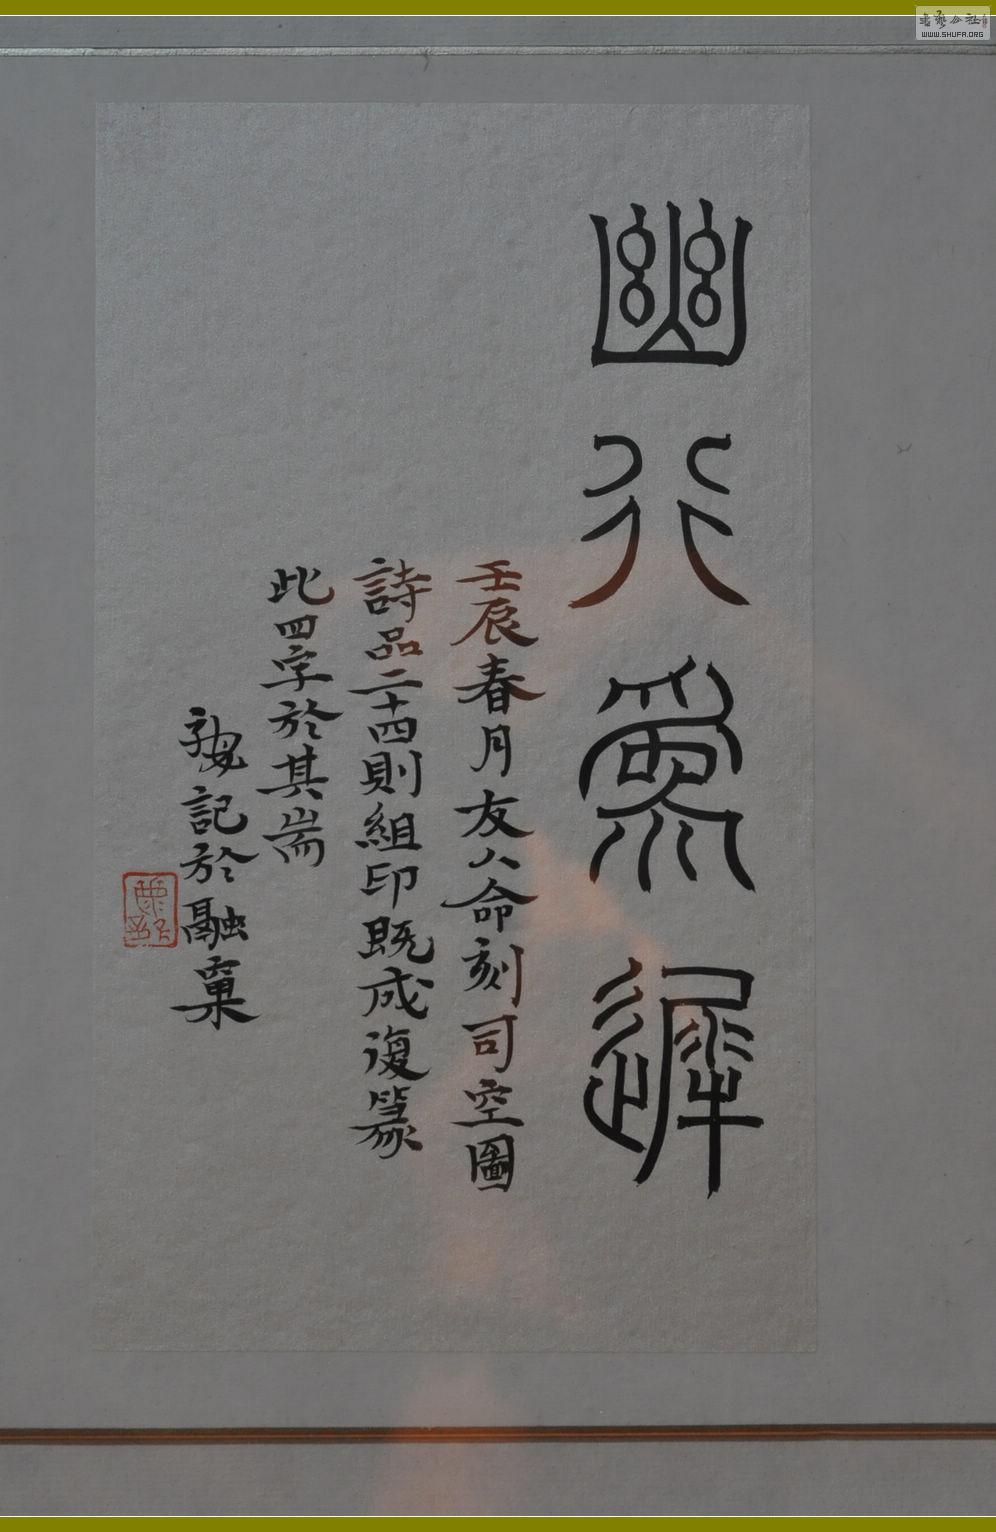 幽行為遲
壬辰春月友人命刻司空圖
詩品二十四則組印既成復篆
此四字於其耑
記於融巢
書法公社
WWW.SHUFA.ORG